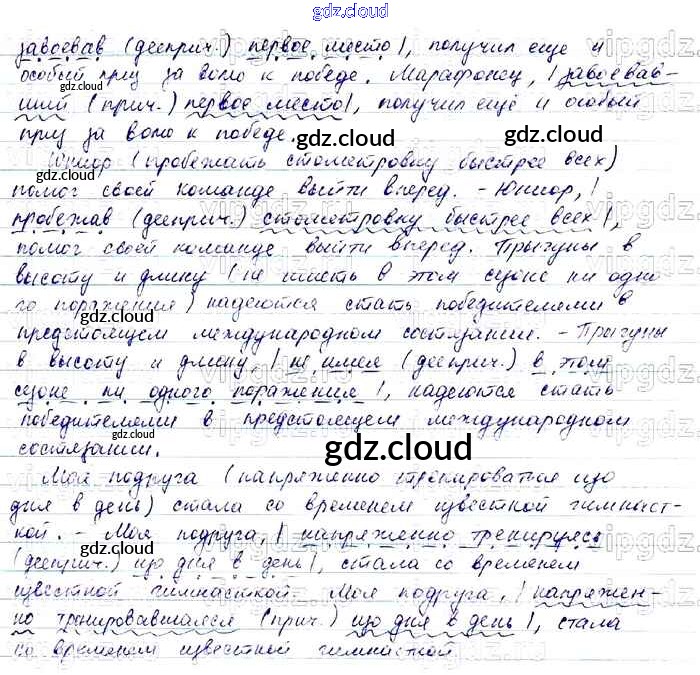 gdz.cloud
завоевав (дееприч.) первое место|, получил еще и
особый приз за волю к победе. Марафонец, |завоевав-
ший (прич.) первое место|, получил ещё и особый
приз за волю к победе.
Юниор (пробежать стометровку быстрее всех)
помог своей команде выйти вперед. - Юниор, |
пробежав (дееприч.) стометровку быстрее всех|,
помог своей команде выйти вперед. Прыгуны в
высоту и длину (не иметь в этом сезоне ни одно
го поражения) надеются стать победителями в
предстоящем международном состязании. - Прыгуны
в высоту и длину, | не имея (дееприч.) в этом
сезоне ни одного поражения |, надеются стать
победителями в предстоящем международном
состязании.
Моя подруга (напряженно тренироваться изо
дня в день) стала со временем известной гимнаст-
кой. - Моя подруга, | напряженно тренируясь
(дееприч.) изо дня в день|, стала со временем
известной гимнасткой. Моя подруга, | напряжен-
но тренировавшаяся (прич.) изо дня в день |, стала
со временем известной гимнасткой